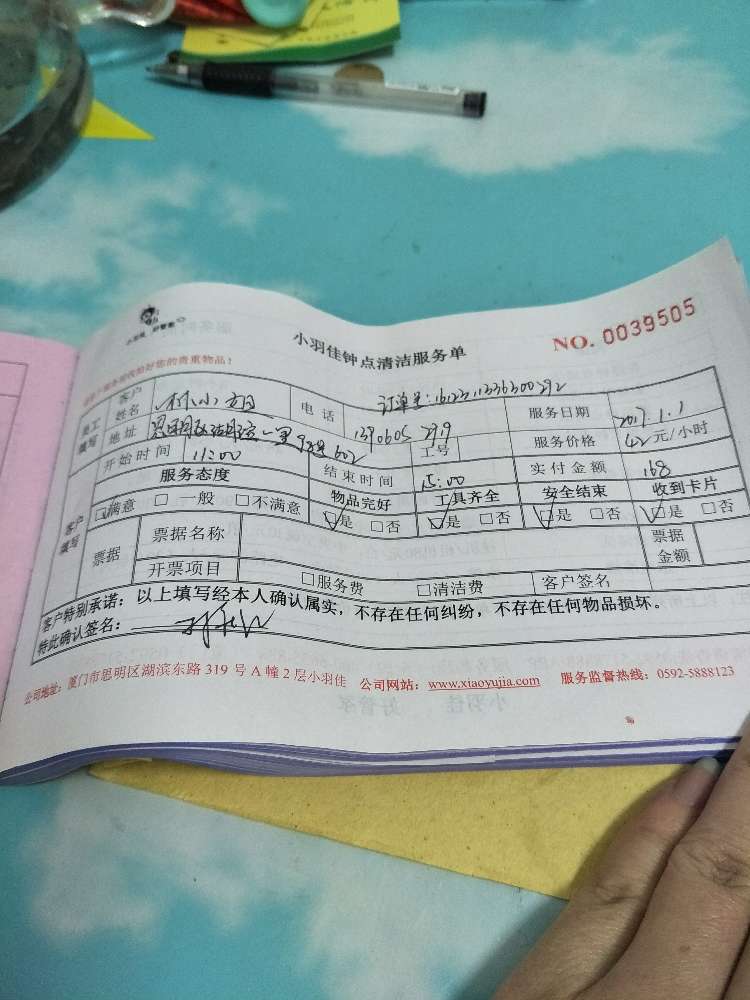 小羽佳 好管家
小羽佳钟点清洁服务单
NO. 0039505
您的贵重物品！
员工填写 客户姓名 林小姐 电话 订单号:1612311336300292 服务日期 2017.1.1
地址 思明区 602 1390605 279 工号 服务价格 42元/小时
客户填写 开始时间 11:00 结束时间 15:00 实付金额 168
服务态度 物品完好 工具齐全 安全结束 收到卡片
☑满意 □一般 □不满意 ☑是 □否 ☑是 □否 ☑是 □否 ☑是 □否
票据 票据名称 票据金额
开票项目 □服务费 □清洁费 客户签名
客户特别承诺：以上填写经本人确认属实，不存在任何纠纷，不存在任何物品损坏。
特此确认签名：
公司地址：厦门市思明区湖滨东路 319 号 A 幢 2 层小羽佳 公司网站：www.xiaoyujia.com 服务监督热线：0592-5888123